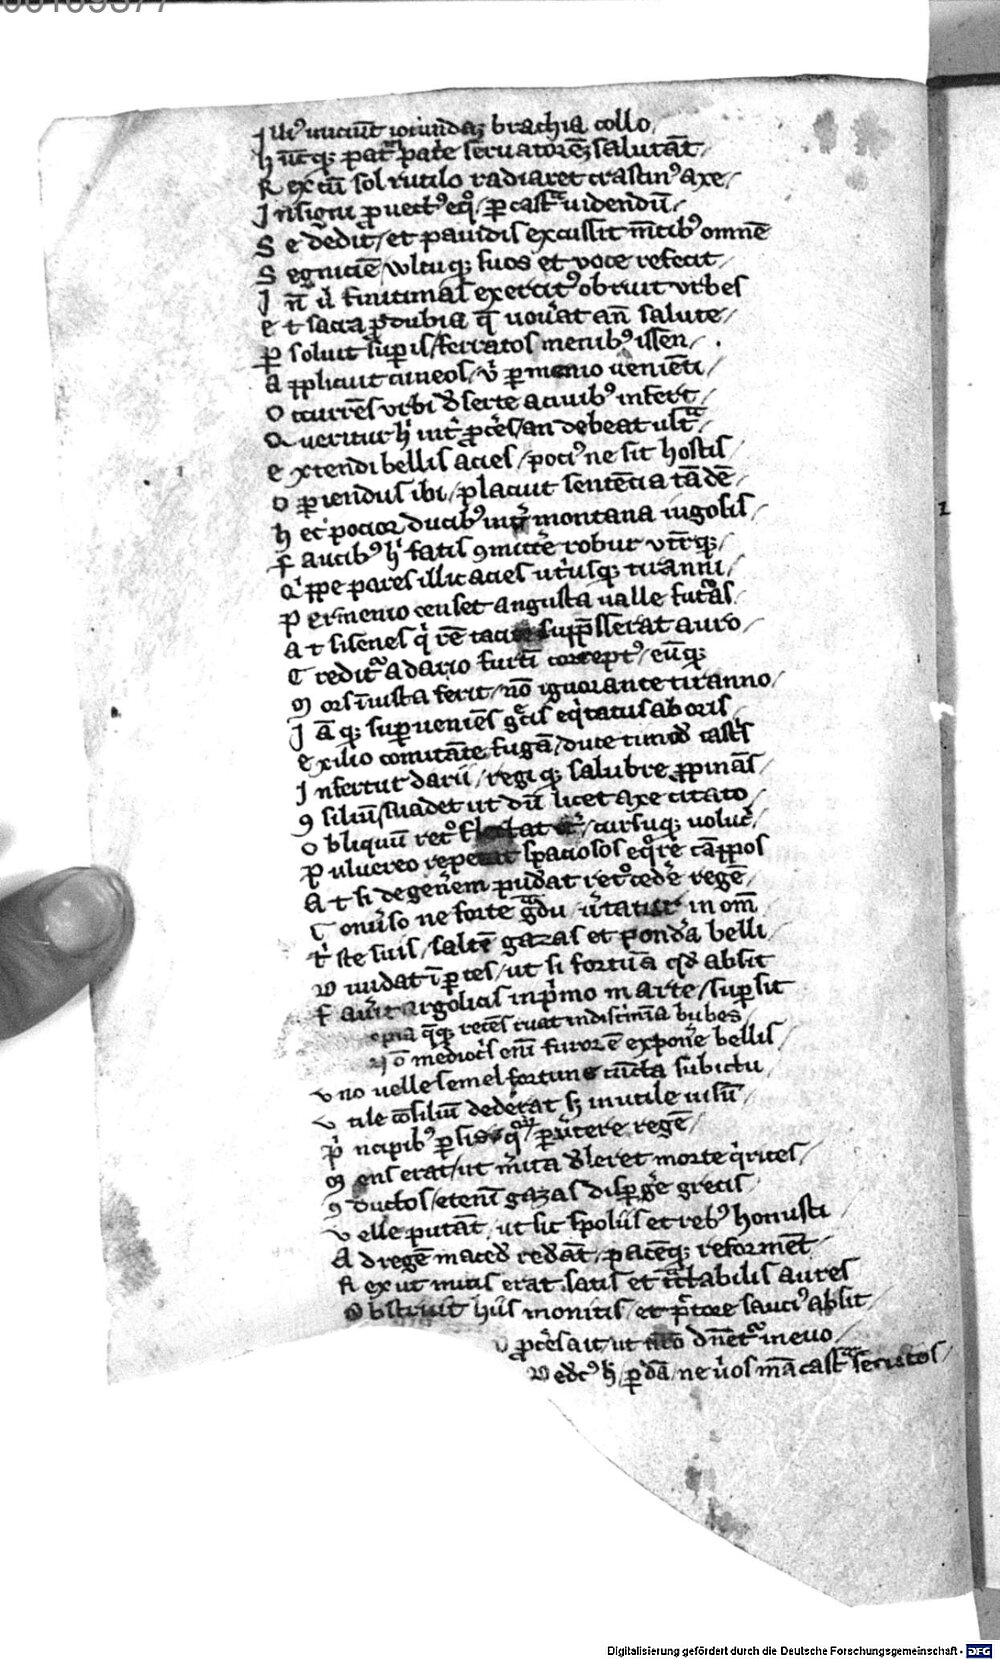 00109377
Illiꝰ innectūt iocundaꝫ brachia collo
hūcqꝫ pat̄ pat̄e seruatorēꝫ salutāt
Rex cū sol rutilo radiaret crastinꝰ axe
Insigni ꝓuectꝰ eqͦ ꝑ castᵃ uidendū
Se dedit et pauidis excussit mētibꝰ omnē
Segniciē wltuqꝫ suos et uoce refecit
Iñ finitimas exercitꝰ obruit vrbes
et sacra ꝓ dubia q̄ uouͥat añ salute
ꝑsoluit suꝑis ferratos menibꝰ issen
Applicuit cuneos ꝑmenio ueniēti
Occurrēs vrbi deserte a ciuibꝰ infert
Queritur hͥ int̄ ꝓcēs an debeat ultᵃ
extendi bellis acies pociꝰ ne sit hostis
Oꝑiendus ibi placuit sentēcia tādē
hec pocior ducibꝰ int̄ montana iugosis
Faucibꝰ hͥ fatis ꝯmitte᷑ robur vtͥqꝫ
Qͥppe pares illic acies utͥusqꝫ tiranni
Permenio censet angusta ualle futᵃs
At sisenes qͥ rē tacite supp̄sserat auro
Creditᵃ a dario furti correptꝰ eūqꝫ
Mors iusta ferit nō ignorante tiranno
Iāqꝫ suꝑueniēs gͣcis eqͥtatus ab oris
exilio comitāte fugā duce timod castͥs
Infertur darii regiqꝫ salubre ꝓpinās
ꝯsiliū suadet ut dū licet axe citato
Obliquū rectͦ cursuqꝫ uolucͥ
Puluereo repetat spaciosos eqͦre cāpos
At si degenerem pudeat retͦcede᷑ regē
Conuͥso ne forte gᵃdu in om̄
tͥste suis saltē gazas et pondͣa belli
Diuidat ī ꝑtes ut si fortūa qd absit
Fauͥit argolicis in pͥmo marte suꝑsit
Copia q̄qꝫ recēs ruat indiscͥmīa bubes
Nō mediocͥs enī furor ē exponͤe bellis
Uno uelle semel fortune cūcta sub ictu
Utile cōsiliū dederat sꝫ inutile uisū
Pͥncipibꝰ ꝑsis ꝑuͥtere regē
Mens erat ut mͥita deleret morte qͥrites
ꝯductos etenī gazas disꝑgͤe grecis
Velle putāt ut sic spoliis et rebꝰ honusti
Ad regē macedū redeāt pacēqꝫ reformēt
Rex ut mitis erat satis et tᵃctabilis aures
Obstruit hiis monitis et pͥtore sauciꝰ absit
O ꝓcēs ait ut dn̄etᵃ in euo
Dedecꝰ hͥ ꝑdā ne uͥos mͣa castᵃ secutos
2
Digitalisierung gefördert durch die Deutsche Forschungsgemeinschaft - DFG